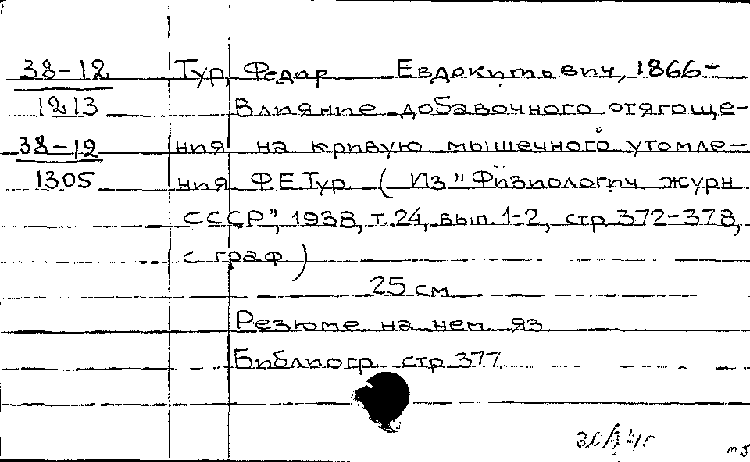 38-12 Тур, Федор Евдокимович, 1866-
1213 Влияние добавочного отягоще-
38-12 ния на кривую мышечного утомле-
1305 ния Ф.Е.Тур (Из "Физиологич журн
СССР", 1938, т.24, вып.1-2, стр 372-378,
с граф)
25 см
Резюме на нем яз
Библиогр стр 377